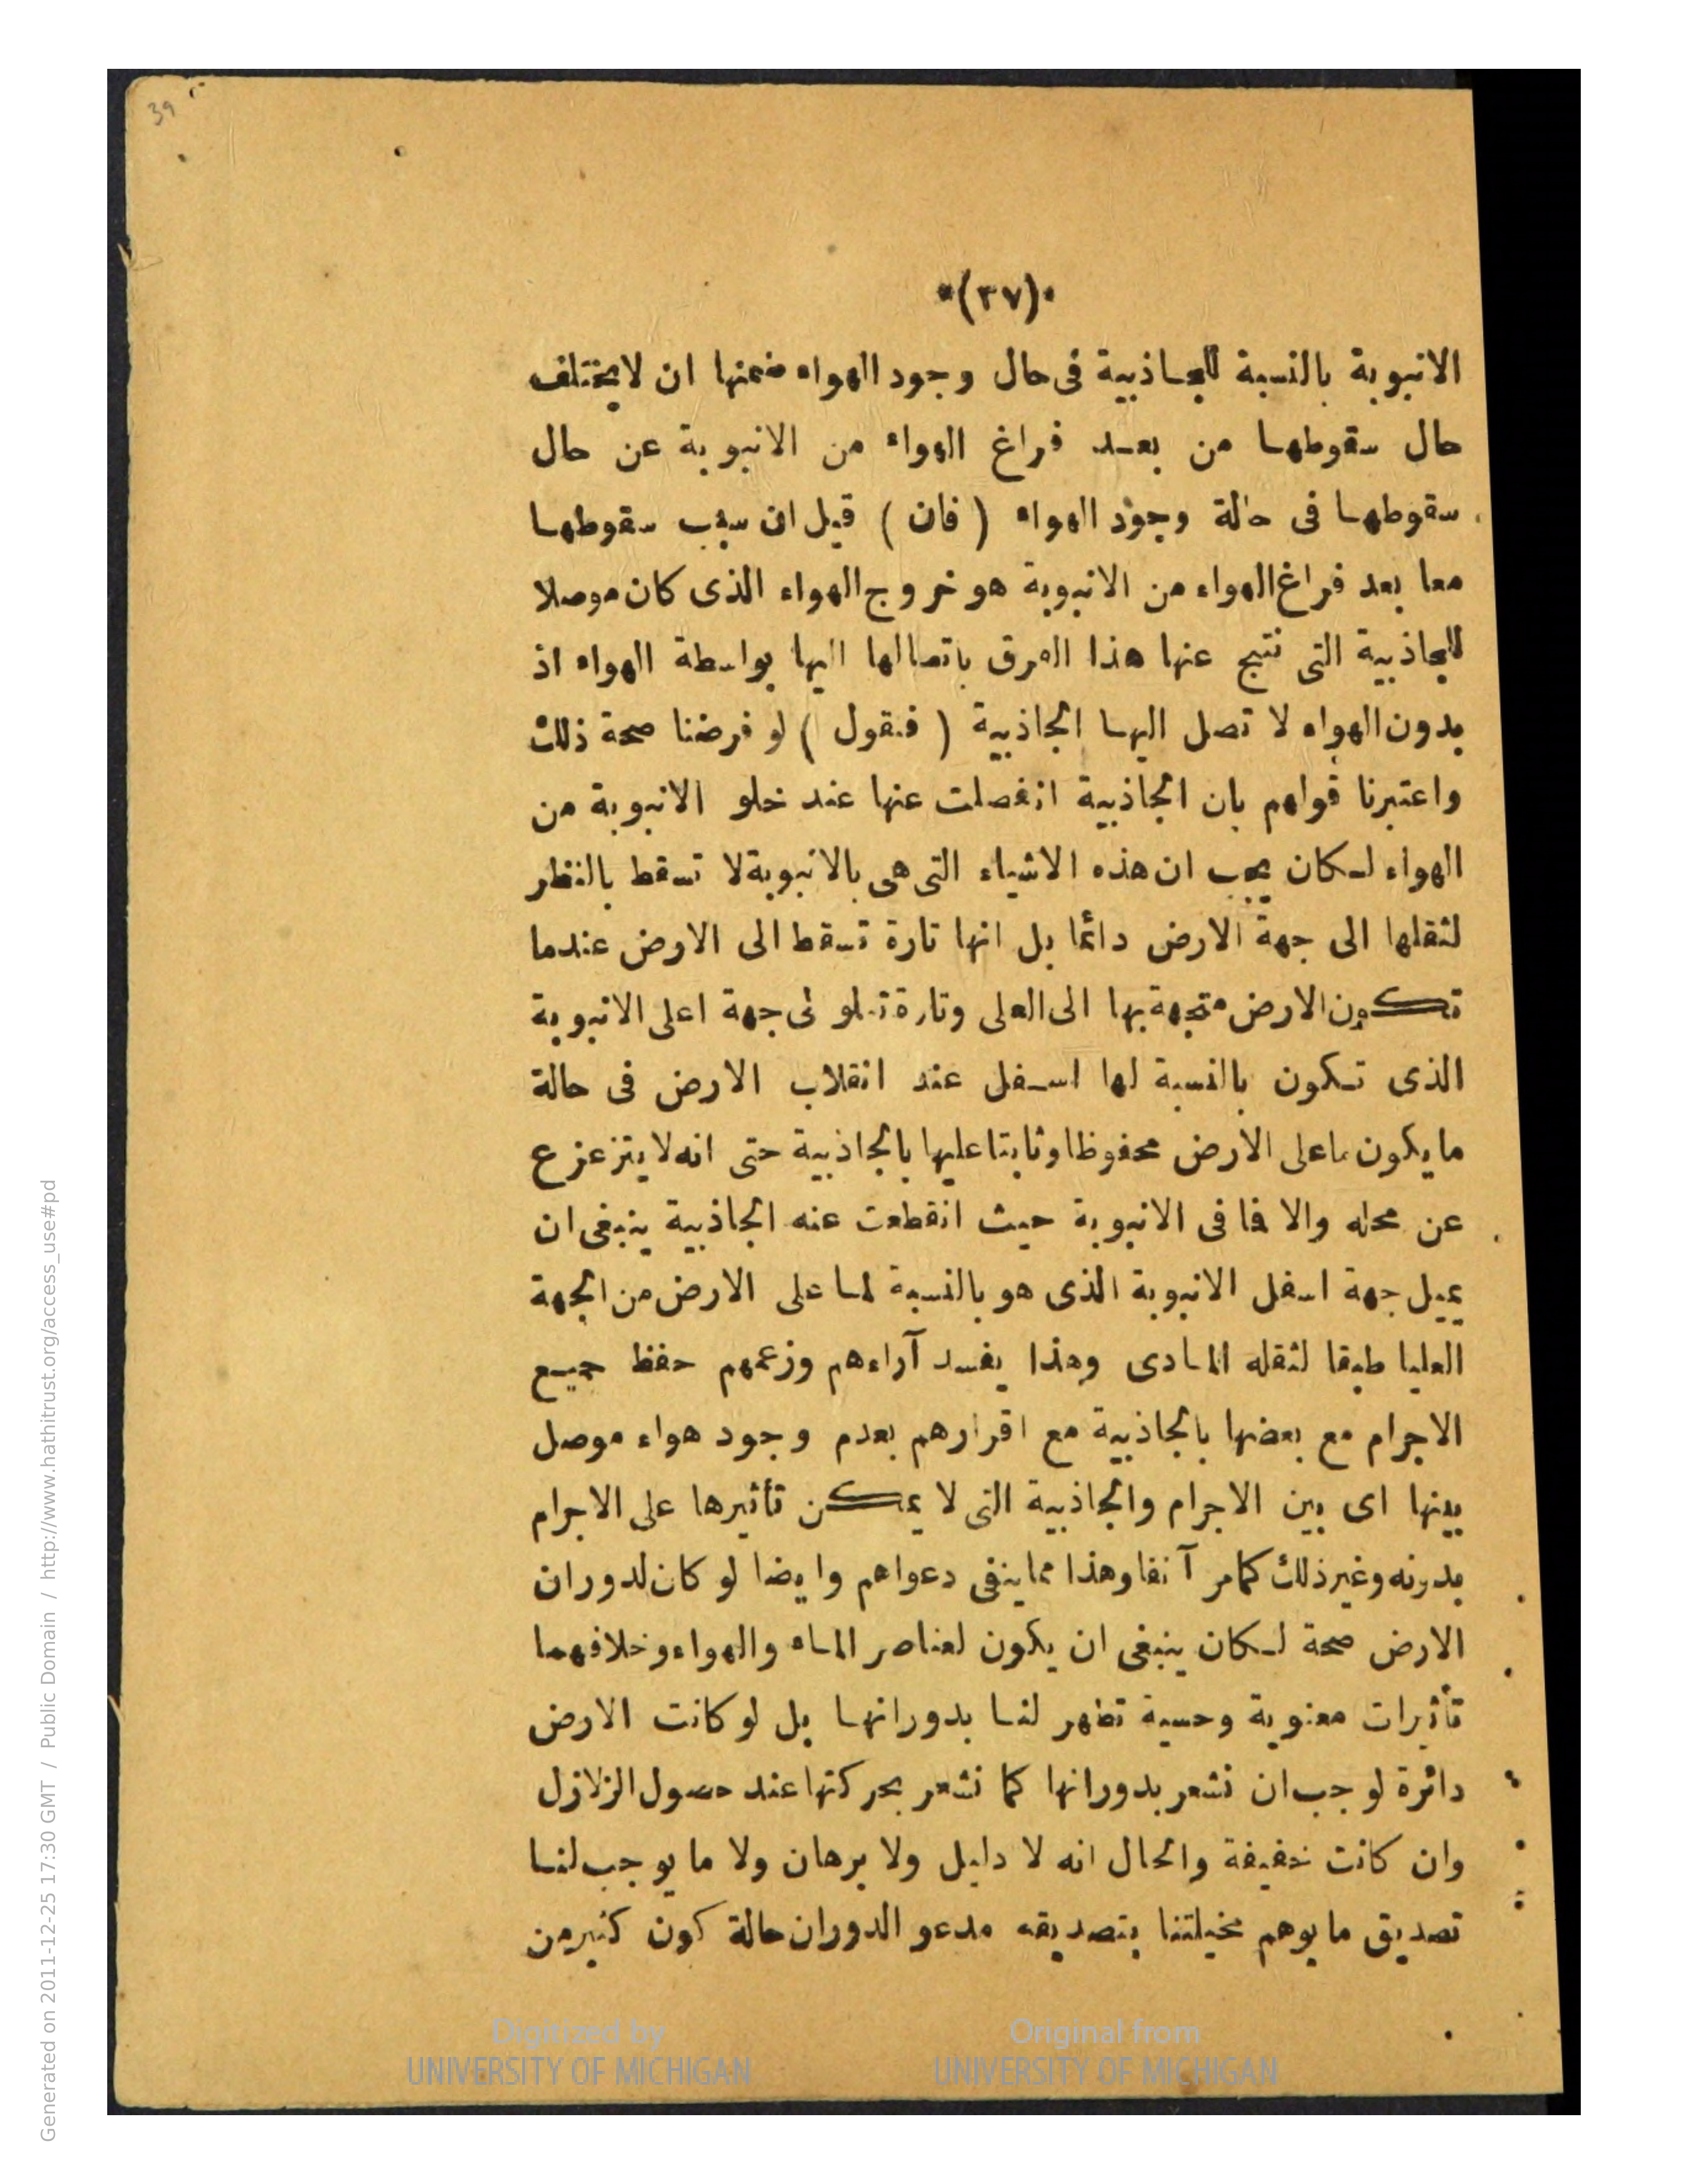 39
*(٣٧)*
الانبوبة بالنسبة للجاذبية فى حال وجود الهواء ضمنها ان لا يختلف
حال سقوطها من بعد فراغ الهواء من الانبوبة عن حال
سقوطها فى حالة وجود الهواء ( فان ) قيل ان سبب سقوطها
معا بعد فراغ الهواء من الانبوبة هو خروج الهواء الذى كان موصلا
للجاذبية التى نتج عنها هذا الفرق باتصالها اليها بواسطة الهواء اذ
بدون الهواء لا تصل اليها الجاذبية ( فنقول ) لو فرضنا صحة ذلك
واعتبرنا قولهم بان الجاذبية انفصلت عنها عند خلو الانبوبة من
الهواء لكان يجب ان هذه الاشياء التى هى بالانبوبة لا تسقط بالنظر
لثقلها الى جهة الارض دائما بل انها تارة تسقط الى الارض عندما
تكون الارض متجهة بها الى العلى وتارة تعلو لى جهة اعلى الانبوبة
الذى تكون بالنسبة لها اسفل عند انقلاب الارض فى حالة
ما يكون ما على الارض محفوظا وثابتا عليها بالجاذبية حتى انه لا يتزعزع
عن محله والا فا فى الانبوبة حيث انقطعت عنه الجاذبية ينبغى ان
يميل جهة اسفل الانبوبة الذى هو بالنسبة لما على الارض من الجهة
العليا طبقا لثقله المادى وهذا يفسد آراءهم وزعمهم حفظ جميع
الاجرام مع بعضها بالجاذبية مع اقرارهم بعدم وجود هواء موصل
بينها اى بين الاجرام والجاذبية التى لا يمكن تأثيرها على الاجرام
بدونه وغير ذلك كما مر آنفا وهذا مما ينفى دعواهم وايضا لو كان لدوران
الارض صحة لكان ينبغى ان يكون لعناصر الماء والهواء وخلافهما
تأثيرات معنوية وحسية تظهر لنا بدورانها بل لو كانت الارض
دائرة لوجب ان نشعر بدورانها كما نشعر بحركتها عند حصول الزلازل
وان كانت خفيفة والحال انه لا دليل ولا برهان ولا ما يوجب لنا
تصديق ما يوهم مخيلتنا بتصديقه مدعو الدوران حالة كون كثير من
Digitized by
UNIVERSITY OF MICHIGAN
Original from
UNIVERSITY OF MICHIGAN
Generated on 2011-12-25 17:30 GMT / Public Domain / http://www.hathitrust.org/access_use#pd